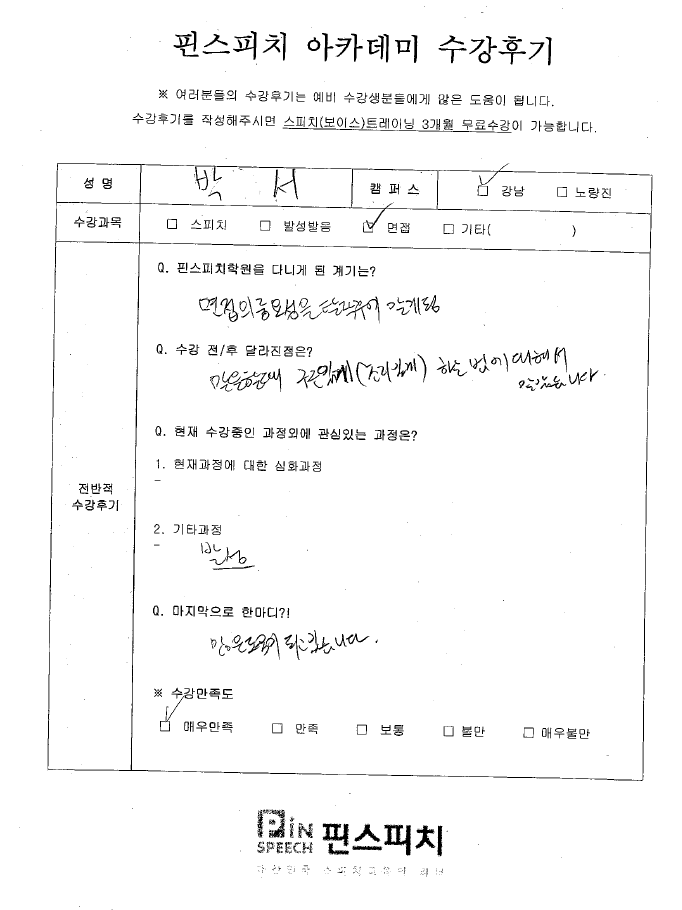 핀스피치 아카데미 수강후기
※ 여러분들의 수강후기는 예비 수강생분들에게 많은 도움이 됩니다.
수강후기를 작성해주시면 스피치(보이스)트레이닝 3개월 무료수강이 가능합니다.
성 명 박 서 캠 퍼 스 □ 강남 □ 노량진
수강과목 □ 스피치 □ 발성발음 □ 면접 □ 기타( )
Q. 핀스피치학원을 다니게 된 계기는?
면접의 중요성을 알게됨
Q. 수강 전/후 달라진점은?
말을할때 조리있게 하는 법에 대해서
알았습니다.
Q. 현재 수강중인 과정외에 관심있는 과정은?
1. 현재과정에 대한 심화과정
-
전반적
수강후기
2. 기타과정
-
발성
Q. 마지막으로 한마디?!
많은 도움이 되고 갑니다.
※ 수강만족도
□ 매우만족 □ 만족 □ 보통 □ 불만 □ 매우불만
PiN
SPEECH 핀스피치